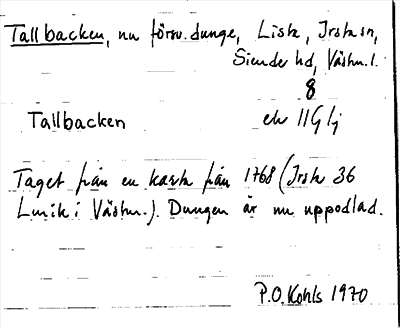 Tallbacken, nu försv. dunge, Lista, Irsta sn,
Siende hd, Västm. l.
8
Tallbacken ek 11G lj
Taget från en karta från 1768 (Irsta 36
Lmik i Västm.). Dungen är nu uppodlad.
P.O. Kohls 1970